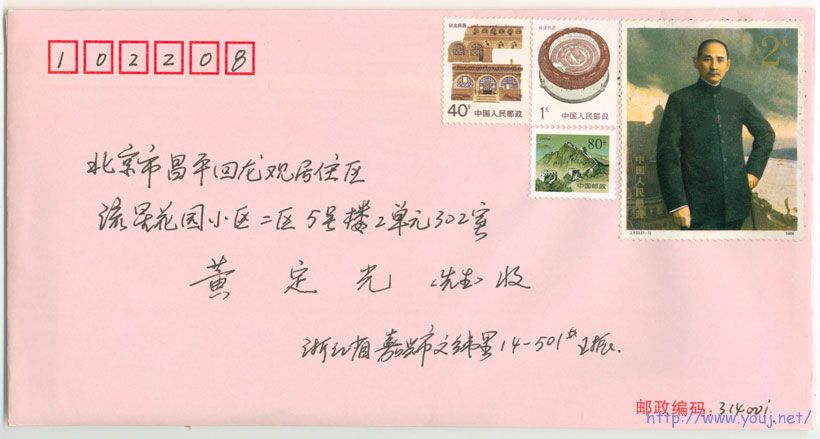 102208
陕北民居
40分
中国人民邮政
福建民居
1元
中国人民邮政
80分
中国邮政
2元
中国人民邮政
J.132.(1-1)
1986
北京市昌平回龙观居住区
流星花园小区二区5号楼2单元302室
黄定光 先生 收
浙江省嘉兴市文纬里14-501
邮政编码 314001
http://www.youj.net/